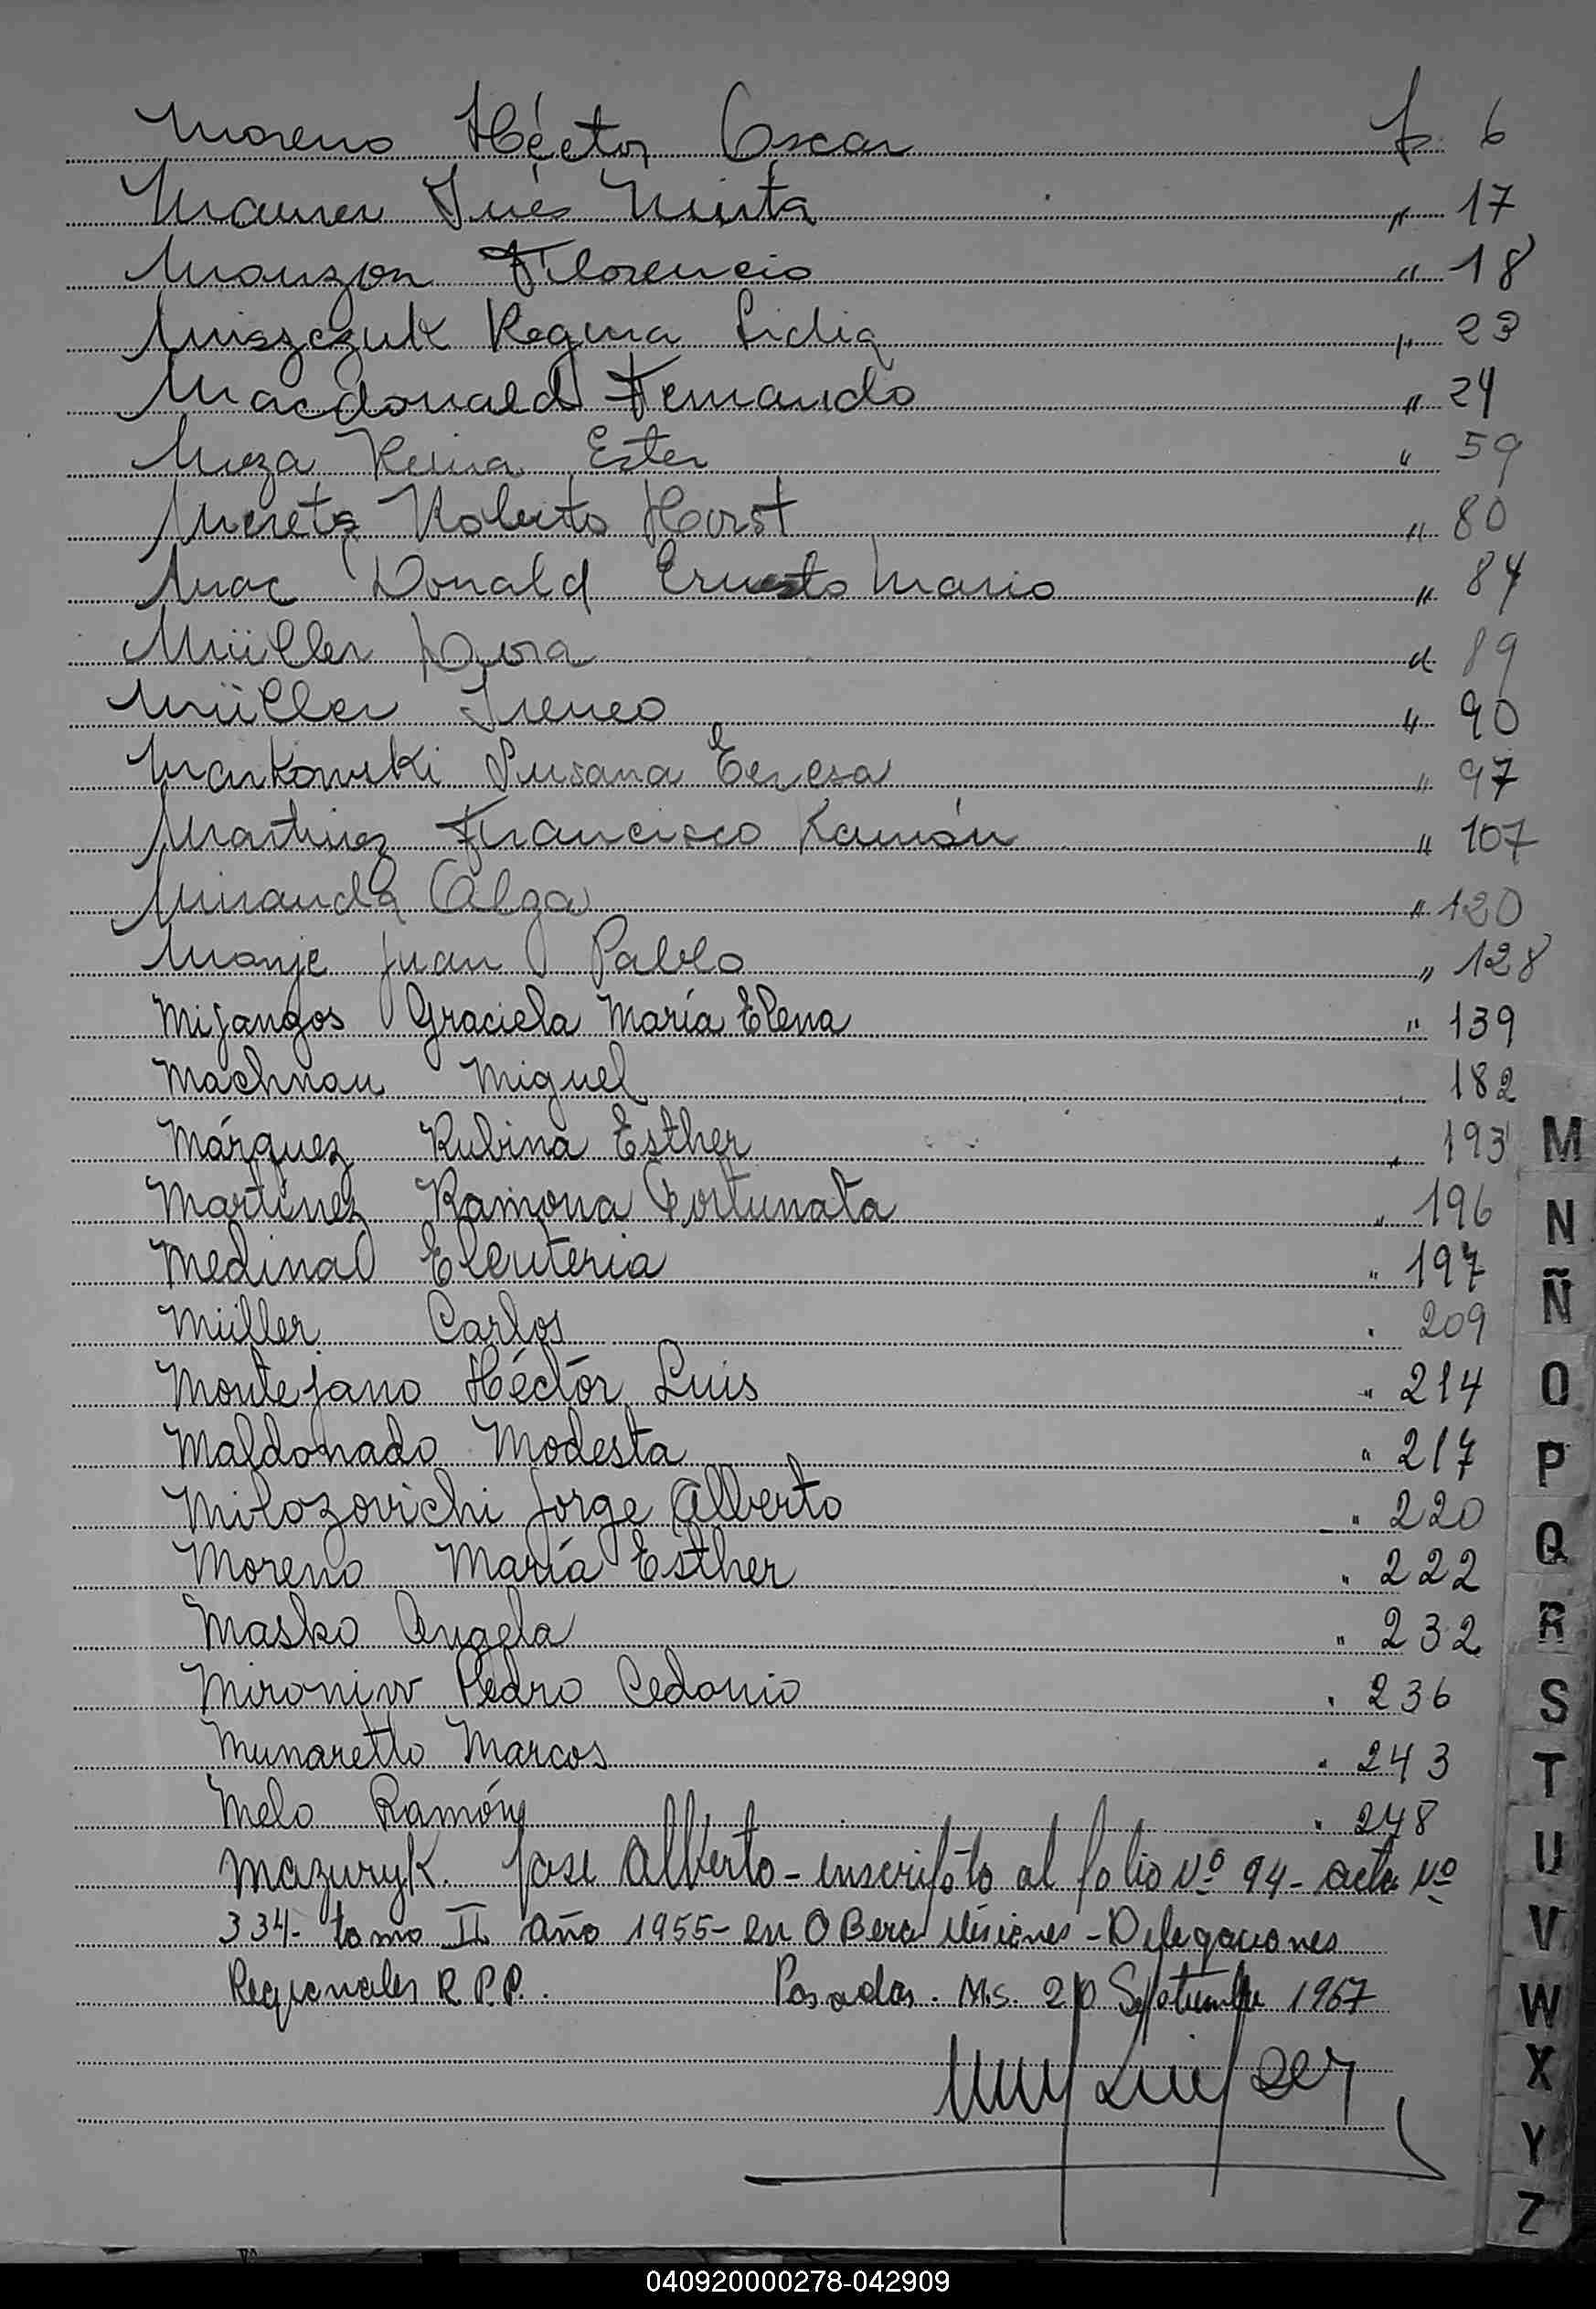 Moreno Héctor Oscar f. 6
Maurer Inés Mirta " 17
Monzon Florencio " 18
Miszczuk Regina Lidia " 23
Macdonald Fernando " 24
Meza Reina Ester " 59
Meretz Roberto Horst " 80
Mac Donald Ernesto Mario " 84
Müller Dora " 89
Müller Ireneo " 90
Markowski Susana Teresa " 97
Martinez Francisco Ramón " 107
Miranda Olga " 120
Monje Juan Pablo " 128
Mijangos Graciela María Elena " 139
Machnau Miguel 182
Márquez Rubina Esther " 193
Martínez Ramona Fortunata " 196
Medina Eleuteria " 197
Müller Carlos " 209
Montejano Héctor Luis " 214
Maldonado Modesta " 217
Milozovichi Jorge Alberto " 220
Moreno María Esther " 222
Masko Angela " 232
Mironiw Pedro Cedonio " 236
Munaretto Marcos " 243
Melo Ramón " 248
Mazuryk. Jose Alberto - inscripto al folio Nº 94 - acta Nº
334 - tomo II año 1955 - en Obera Misiones - Delegaciones
Regionales R.P.P. Posadas. Ms. 20 Septiembre 1967
M
N
Ñ
O
P
Q
R
S
T
U
V
W
X
Y
Z
040920000278-042909